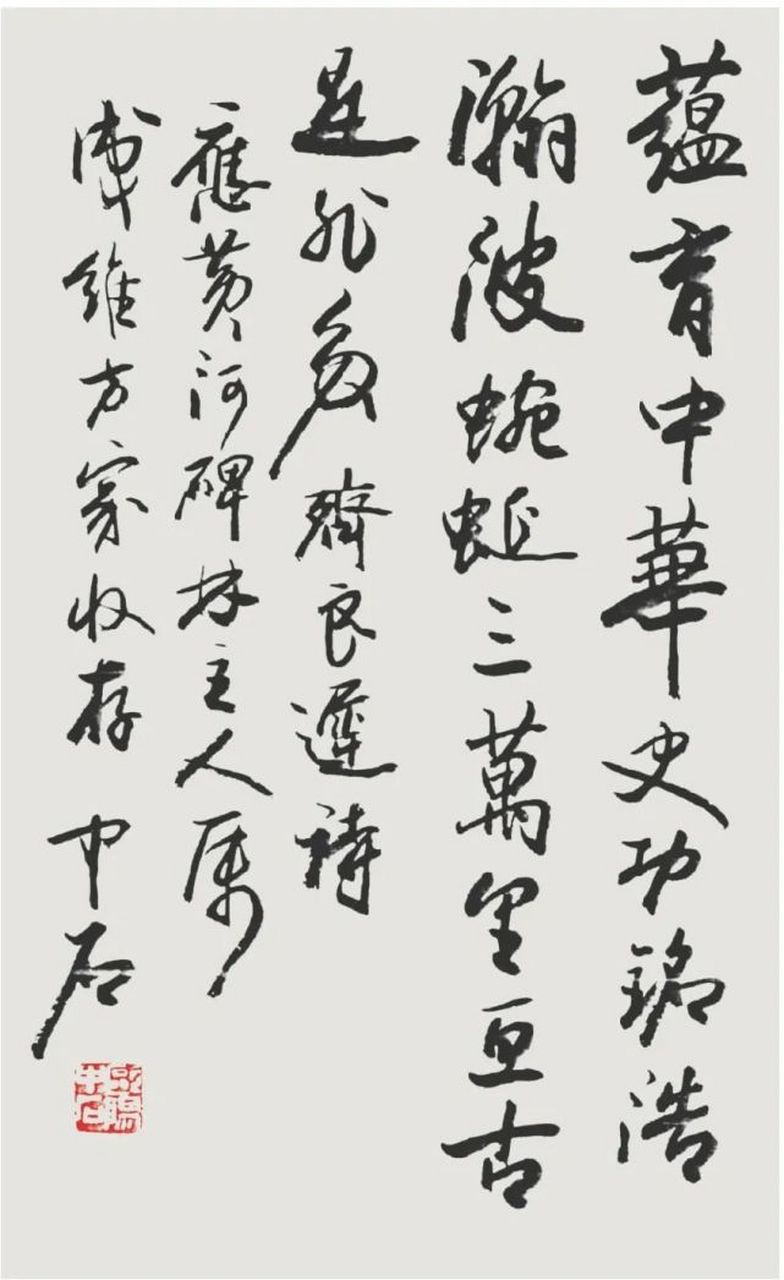 蘊育中華史功銘浩
瀚波蜿蜒三萬里亘古
是非多 齊良遲詩
應黃河碑林主人属
維方家收存 中石
歐陽中石